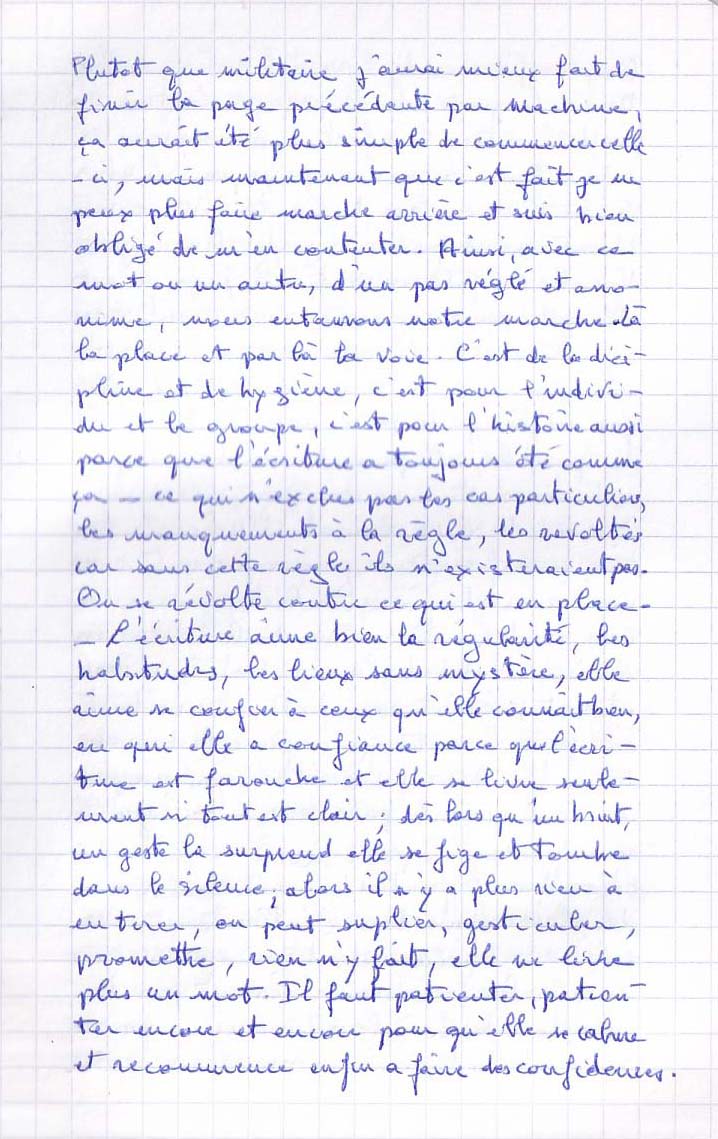 Plutot que militaire j'aurai mieux fait de
finir la page précédante par machine,
ça aurait été plus simple de commencer celle
-ci, mais maintenant que c'est fait je ne
peux plus faire marche arrière et suis bien
obligé de m'en contenter. Ainsi, avec ce
mot ou un autre, d'un pas réglé et ano-
nime, nous entamons notre marche. Là
la place et par là la voie. C'est de la dici-
pline et de hygiène, c'est pour l'indivi-
du et le groupe, c'est pour l'histoire aussi
parce que l'écriture a toujours été comme
ça - ce qui n'exclus pas les cas particuliers,
les manquements à la règle, les révoltés
car sans cette règle ils n'existeraient pas.
On se révolte contre ce qui est en place -
- L'écriture aime bien la régularité, les
habitudes, les lieux sans mystère, elle
aime se confier à ceux qu'elle connaît bien,
en qui elle a confiance parce que l'écri-
ture est farouche et elle se livre seule-
ment si tout est clair ; dès lors qu'un bruit,
un geste la surprend elle se fige et tombe
dans le silence ; alors il n'y a plus rien à
en tirer, on peut suplier, gesticuler,
promettre, rien n'y fait, elle ne livre
plus un mot. Il faut patienter, patien-
ter encore et encore pour qu'elle se calme
et recommence enfin a faire des confidences.